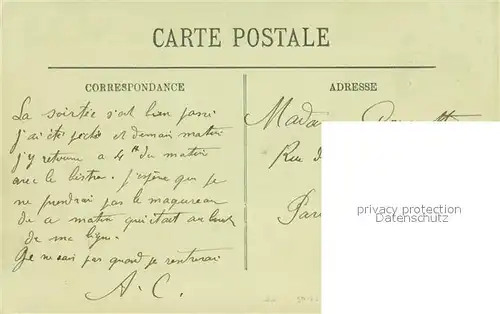 CARTE POSTALE
CORRESPONDANCE
ADRESSE
La soirée s'est bien passé
j'ai été pêché et demain matin
j'y retourne a 4h du matin
avec le bistro. J'espère que je
ne prendrai pas le maquereau
de a matin qui était au bout
de ma ligne.
Je ne sais pas quand je rentrerai
A. C.
Madame
Rue d
Pari
privacy protection
Datenschutz